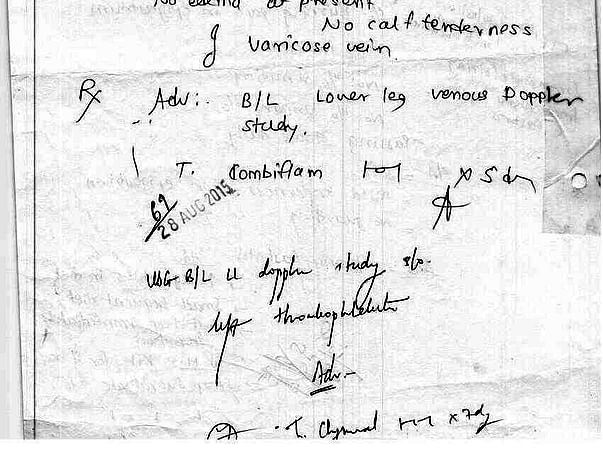 No edema at present
No calf tenderness
varicose vein
Rx Adv:. B/L Lower leg venous Doppler
study.
T. Combiflam x 5 dy
61
28 AUG 2015
USG B/L LL doppler study s/o.
left thrombophlebitis
Adv.-
T. Chymoral x 7dy